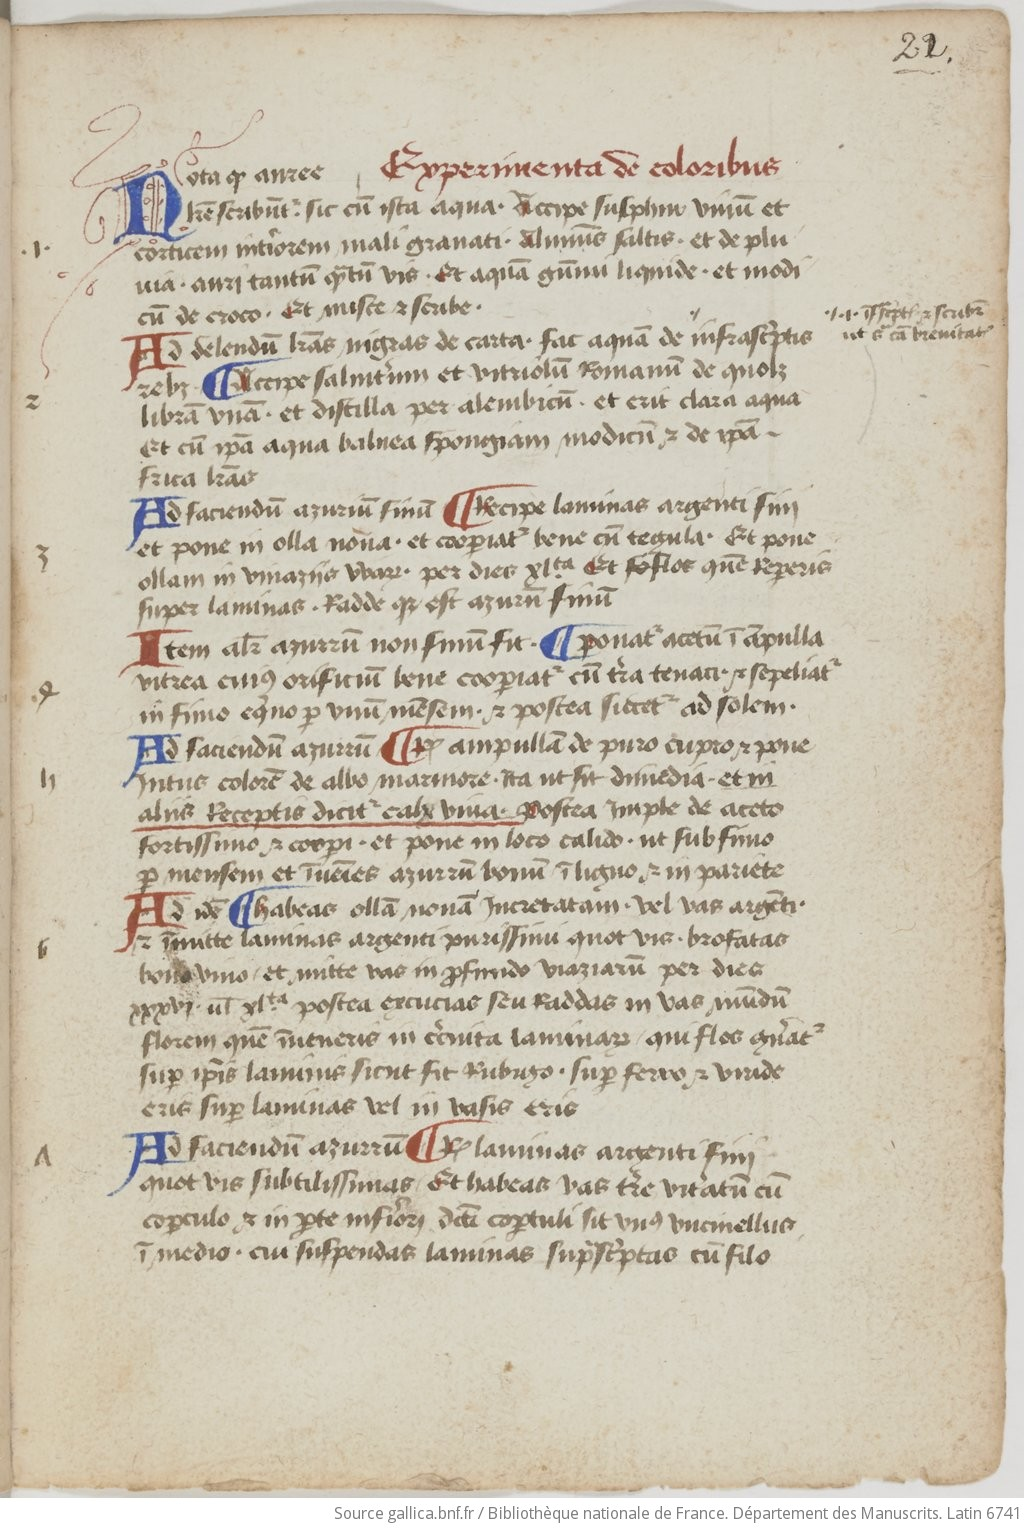 22.
Experimenta de coloribus
Nota qꝫ auree
lr̄e scribūt᷑ sic cū ista aqua. Accipe sulphur viuū et
.1.
corticem interiorem mali granati. aluminis saltis. et de plu
uia. auri tantū qͣtū vis. Et aquā gūmi liquide. et modi
cū de croco. Et misce ⁊ scribe.
Ad delendū lr̄as nigras de carta. fac aquā de infrascͥptis
.i. īscͥpti ⁊ scribr̄
ut sͣ cā breuitat᷑
2
rebꝫ. ¶ Accipe salnitrum et vitriolū Romanū de quolꝫ
librā vnā. et distilla per alembicū. et erit clara aqua
Et cū ip̄a aqua balnea spongiam modicū ⁊ de ip̄a
frica lr̄as
Ad faciendū azuriū finū ¶ Recipe laminas argenti fini
3
et pone in olla noua. et cooperiat᷑ bene cū tegula. Et pone
ollam in vinaziis vuaꝝ. per dies xlta Et flos quē Reperis
super laminas. Radde qꝫ est azurū finū
Item alr̄ azurrū non finū fit. ¶ ponat᷑ acetū ī āpulla
vitrea cuiꝰ orificiū bene cooperiat᷑ cū tr̄a tenaci. ⁊ sepeliat᷑
4
in fimo eq̄no ꝑ vnū mēsem. ⁊ postea siccet᷑ ad solem.
Ad faciendū azurrū ¶ ℞ ampullā de puro cupro ⁊ pone
5
Intus colorē de albo marmore. ita ut sit dimedia. et in
aliis Receptis dicit᷑ calx viua. postea Imple de aceto
fortissimo ⁊ coopi. et pone in loco calido. ut sub fimo
ꝑ mensem et īuēies azurrū bonū ī ligno ⁊ in pariete
Ad idē ¶ habeas ollā nouā Incretatam. vel vas argēti.
6
⁊ īmitte laminas argenti purissimi quot vis. brofatas
bono vino et mitte vas in ꝓfundo viaziarū per dies
xxxvi. ul̄ xlta postea excucias seu Raddas in vas mūdū
florem quē īueneris in circuita laminaꝝ qui flos gn̄at᷑
suꝑ ip̄is laminis sicut fit Rubigo. suꝑ ferro ⁊ viride
eris suꝑ laminas vel in vasis eris
Ad faciendū azurrū ¶ ℞ laminas argenti fini
7
quot vis subtilissimas Et habeas vas tr̄e vitͥatū cū
coꝑculo ⁊ in ꝑte inferiori dc̄i coꝑculi sit vnꝰ vncinellus
ī medio. cui suspendas laminas supͣscͥptas cū filo
Source gallica.bnf.fr / Bibliothèque nationale de France. Département des Manuscrits. Latin 6741